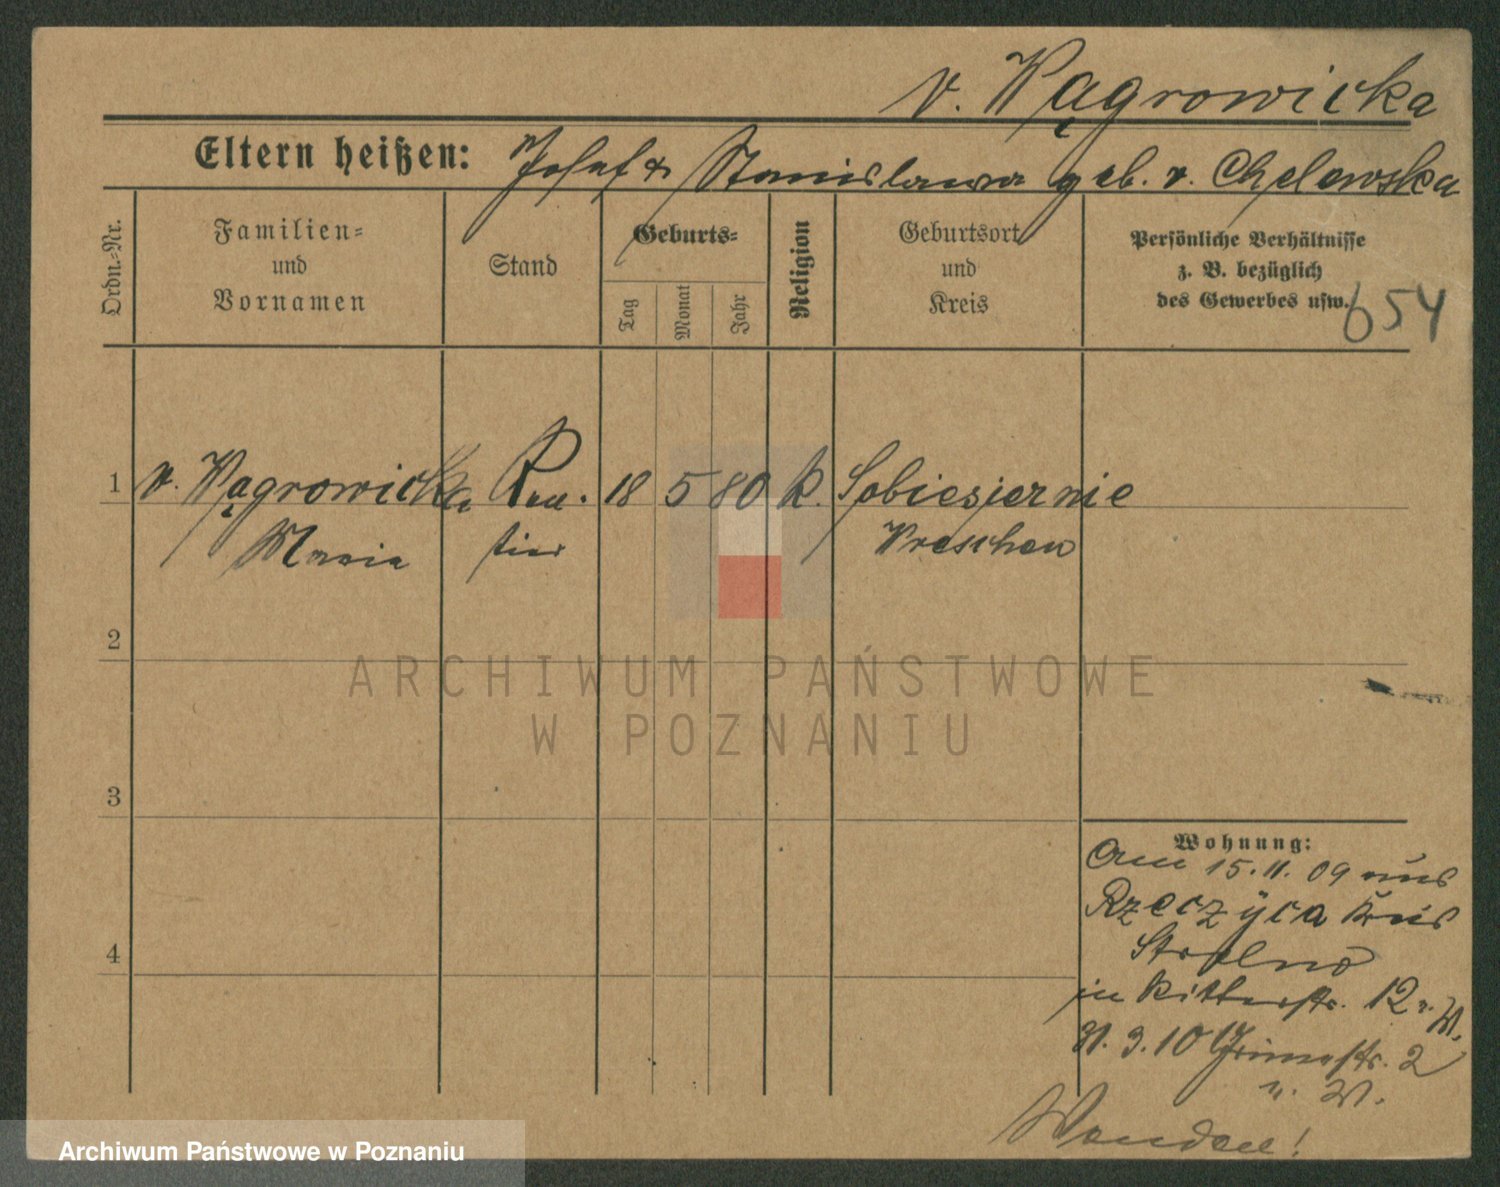 v. Wągrowicka
Eltern heißen: Josef & Stanislawa geb. v. Chelewska
Ordn.-Nr.
Familien-
und
Vornamen
Stand
Geburts-
Tag
Monat
Jahr
Religion
Geburtsort
und
Kreis
Persönliche Verhältnisse
z. B. bezüglich
des Gewerbes usw.
654
1 v. Wągrowicka Ren. 18 5 80 k. Sobiesiernie
Maria tier Wreschen
2
3
4
Wohnung:
Am 15.11.09 aus
Rzeczyca Kreis
Strelno
in Ritterstr. 12
3.10 2
ARCHIWUM PAŃSTWOWE
W POZNANIU
Archiwum Państwowe w Poznaniu